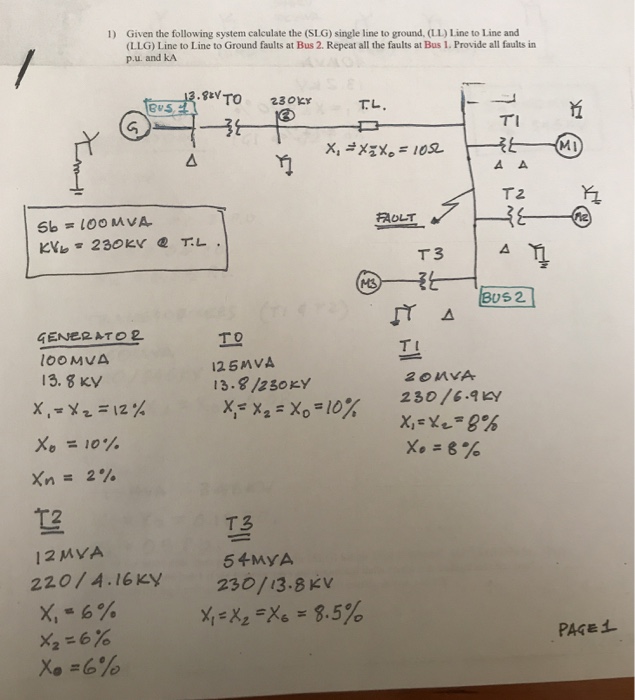 1) Given the following system calculate the (SLG) single line to ground, (LL) Line to Line and
(LLG) Line to Line to Ground faults at Bus 2. Repeat all the faults at Bus 1. Provide all faults in
p.u. and kA
BUS 1
13.8KV TO
230KV
T.L.
2
G
X₁ = X₂ = X₀ = 10Ω
T1
M1
Δ
Δ Δ
T2
M2
FAULT
Δ
Sb = 100MVA
KVb = 230KV @ T.L.
T3
M3
Δ
BUS2
GENERATOR
100MVA
13.8 KV
X₁ = X₂ = 12%
X₀ = 10%
Xn = 2%
TO
125MVA
13.8/230KV
X₁ = X₂ = X₀ = 10%
T1
20MVA
230/6.9KV
X₁ = X₂ = 8%
X₀ = 8%
T2
12MVA
220/4.16KV
X₁ = 6%
X₂ = 6%
X₀ = 6%
T3
54MVA
230/13.8KV
X₁ = X₂ = X₀ = 8.5%
PAGE 1